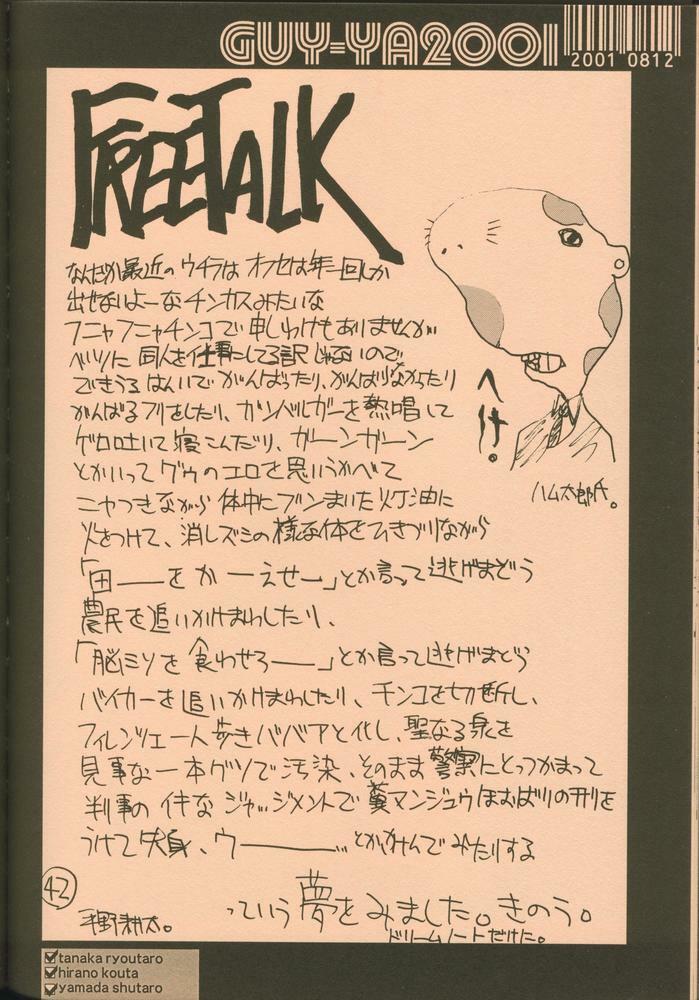 GUY-YA2001
2001 0812
FREETALK
なんだか最近のウチラはオフセは年一回しか
出せないよーなチンカスみたいな
フニャフニャチンコで申しわけもありませんが
ベツに同人を仕事にしてる訳じゃないので
できうるはんいでがんばったり、がんばりなかったり
がんばるフリをしたり、ガンバルガーを熱唱して
ゲロ吐いて寝こんだり、ガーンガーン
とかいってグゥのエロを思いうかべて
ニヤつきながら体中にブンまいた灯油に
火をつけて、消しズミの様な体をひきづりながら
「田――をかーえせー」とか言って逃げまどう
農民を追いかけまわしたり、
「脳ミソを食わせろ――」とか言って逃げまどう
バイカーを追いかけまわしたり、チンコを切断し、
フィレンツェ一人歩きババアと化し、聖なる泉を
見事な一本グソで汚染、そのまま警察にとっつかまって
判事のイキなジャッジメントで糞マンジュウほおばりの刑を
うけて失身、ウ――――…とかかんでみたりする
っていう夢をみました。きのう。
ドリームノートだけた。
へけ!
ハム太郎氏。
42
平野耕太。
tanaka ryoutaro
hirano kouta
yamada shutaro